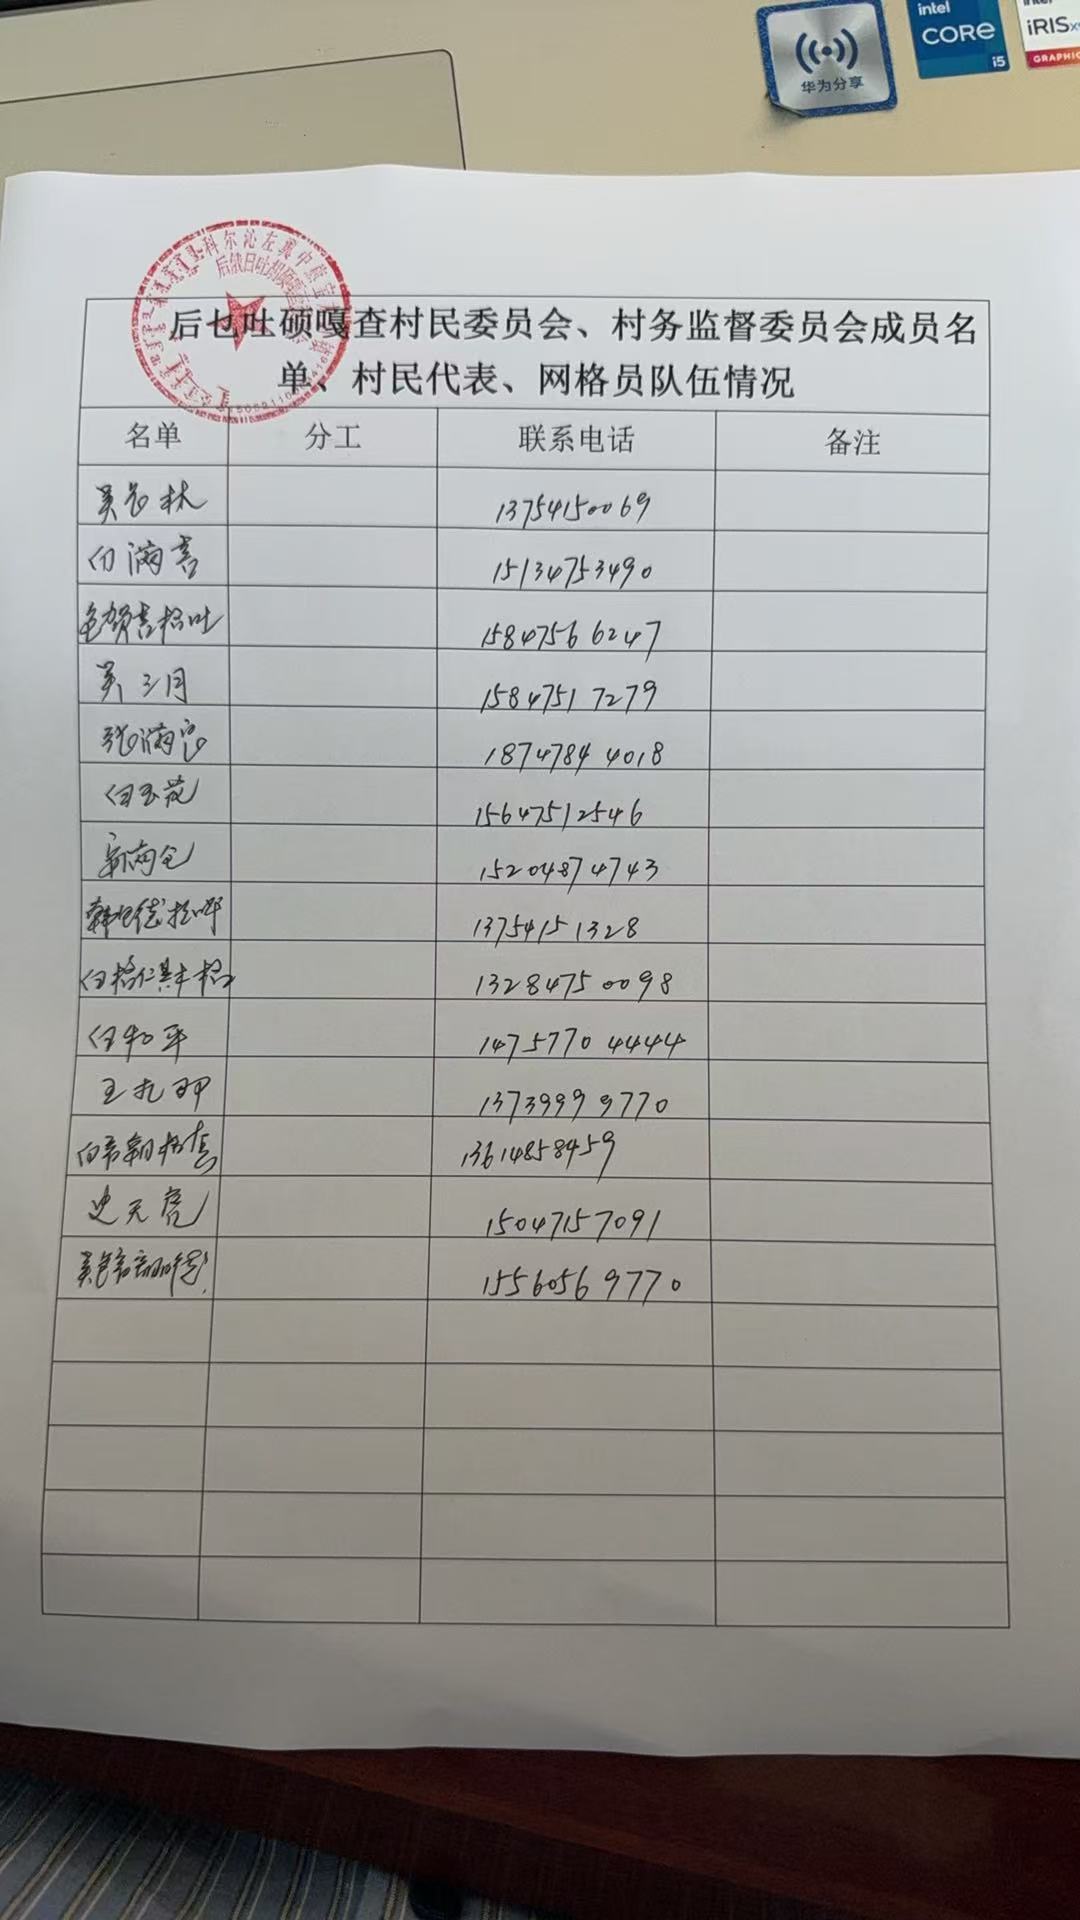 intel
CORE
i5
intel
iRISxe
GRAPHICS
华为分享
科尔沁左翼中旗
后乜吐硕嘎查村民委员会、村务监督委员会成员名
单、村民代表、网格员队伍情况
名单 分工 联系电话 备注
吴长林 13754150069
白满喜 15134753490
包贺喜格吐 15847566247
吴三月 15847517279
张满良 18747844018
白玉花 15647512546
15204874743
13754151328
13284750098
白和平 14757704444
王扎那 13739999770
13614858459
史天亮 15047157091
15560569770